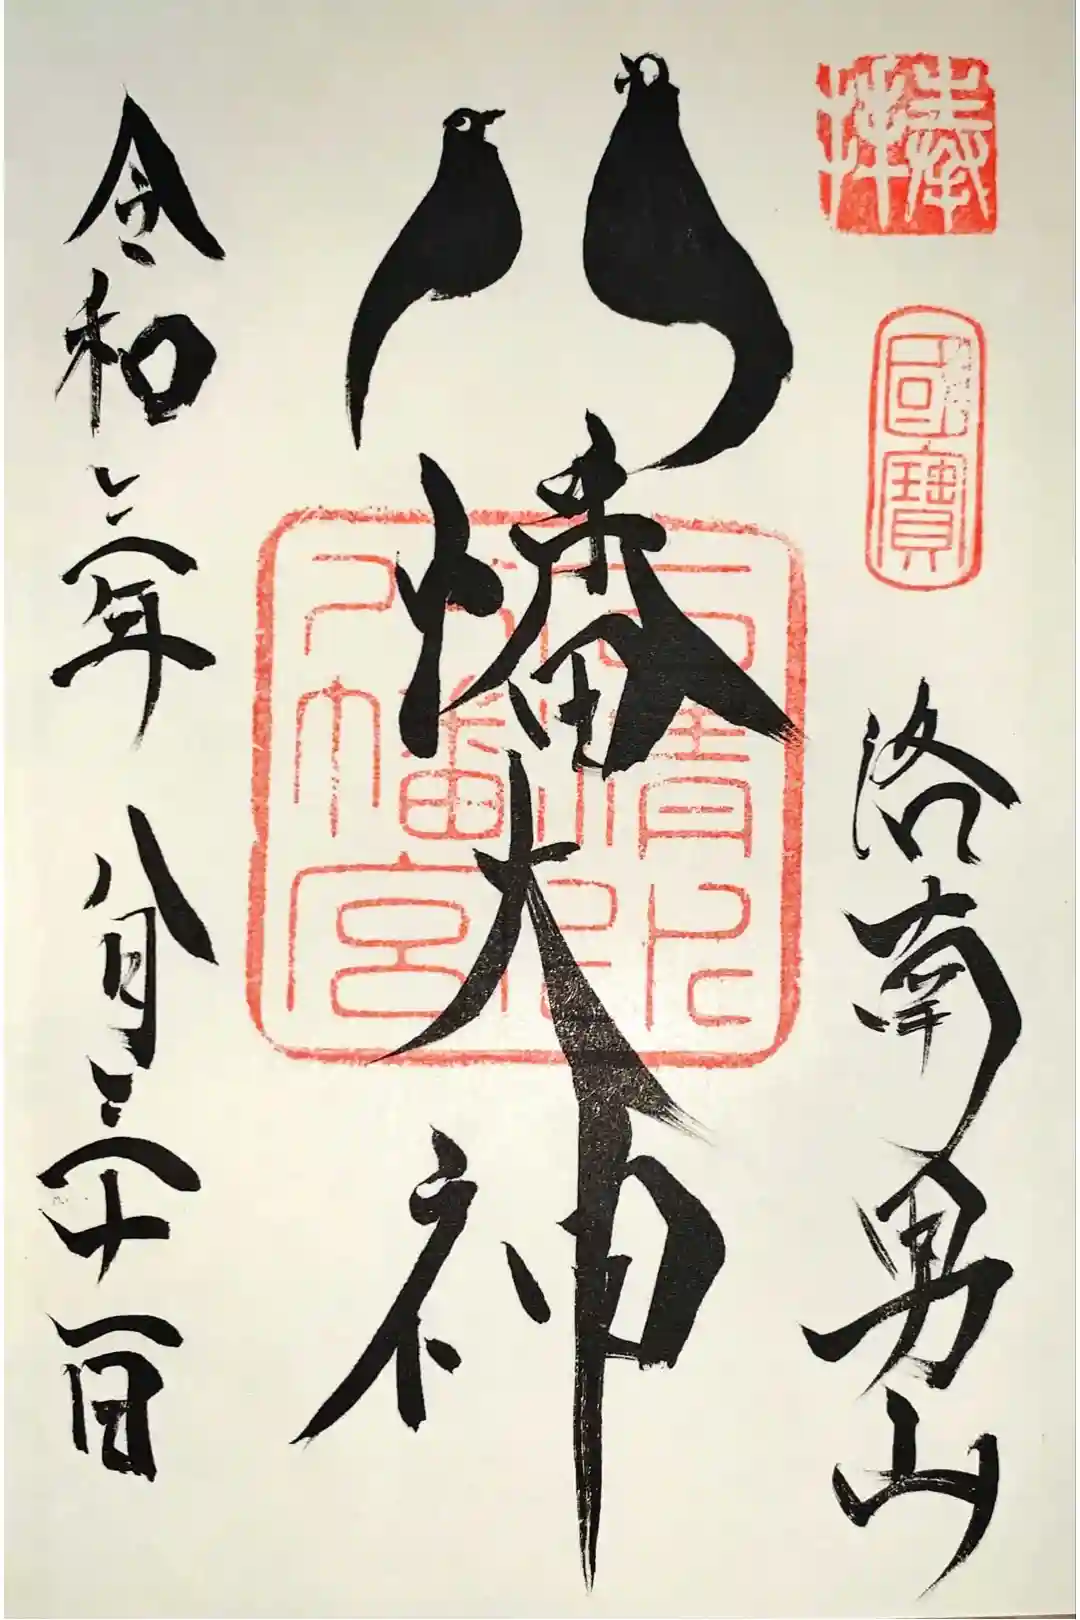 奉拝
國寶
洛南男山
八幡大神
石清水八幡宮
令和三年八月三十一日